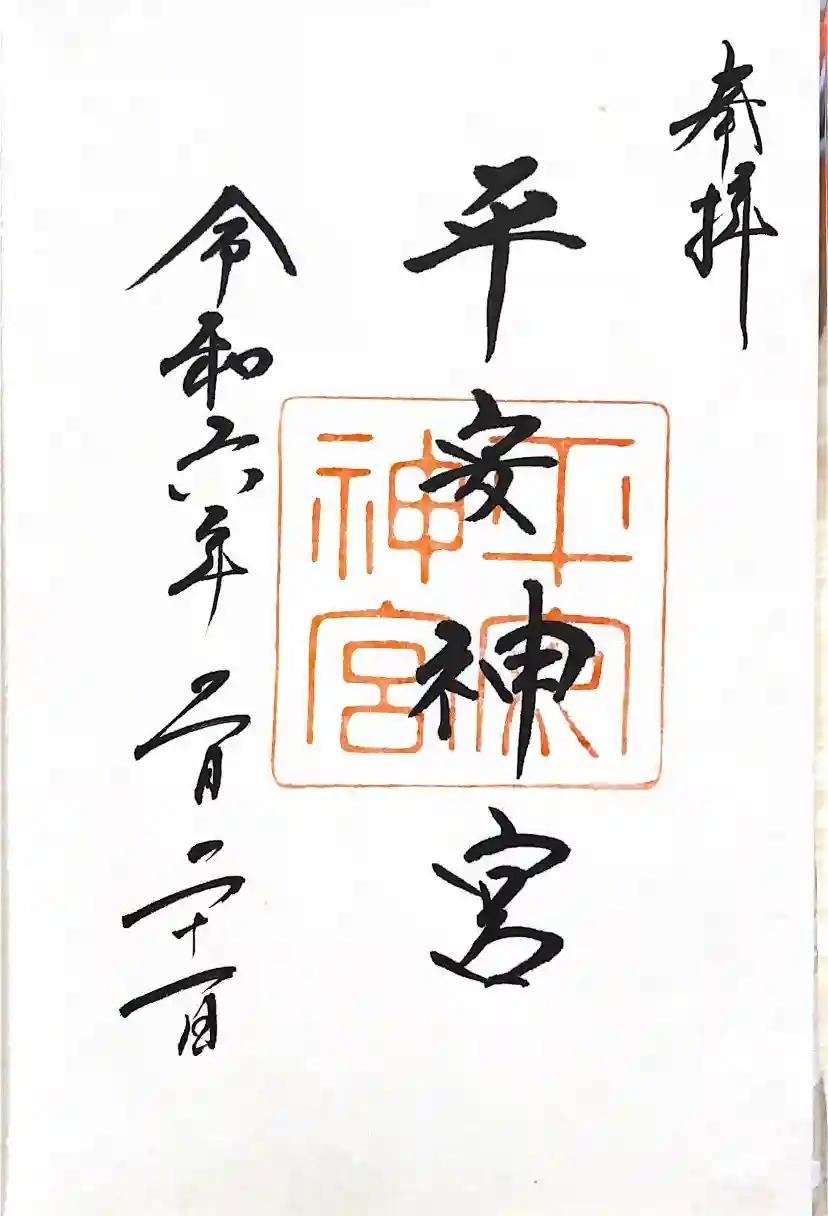 奉拝
平安神宮
平安神宮
令和六年二月二十一日